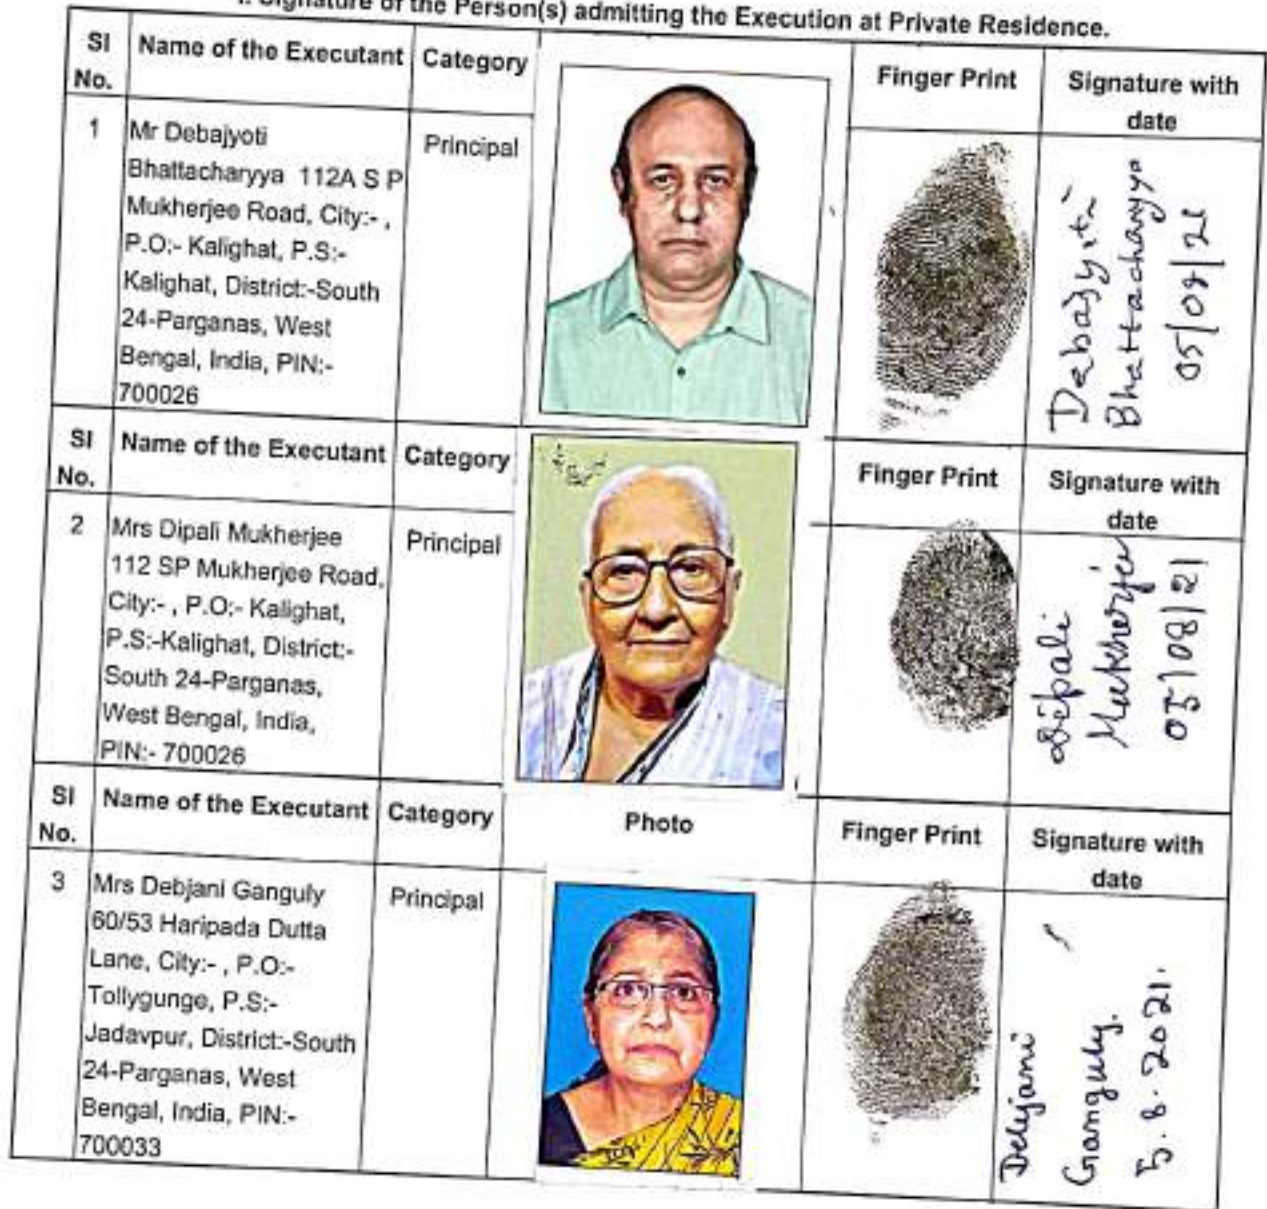 Signature of the Person(s) admitting the Execution at Private Residence.
Sl No. Name of the Executant Category Finger Print Signature with date
1 Mr Debajyoti
Bhattacharyya 112A S P
Mukherjee Road, City:- ,
P.O:- Kalighat, P.S:-
Kalighat, District:-South
24-Parganas, West
Bengal, India, PIN:-
700026
Principal
Debajyoti
Bhattacharyya
Sl No. Name of the Executant Category Finger Print Signature with date
2 Mrs Dipali Mukherjee
112 SP Mukherjee Road,
City:- , P.O:- Kalighat,
P.S:-Kalighat, District:-
South 24-Parganas,
West Bengal, India,
PIN:- 700026
Principal
Dipali
Mukherjee
05/08/21
Sl No. Name of the Executant Category Photo Finger Print Signature with date
3 Mrs Debjani Ganguly
60/53 Haripada Dutta
Lane, City:- , P.O:-
Tollygunge, P.S:-
Jadavpur, District:-South
24-Parganas, West
Bengal, India, PIN:-
700033
Principal
Debjani
Ganguly.
5.8.2021.